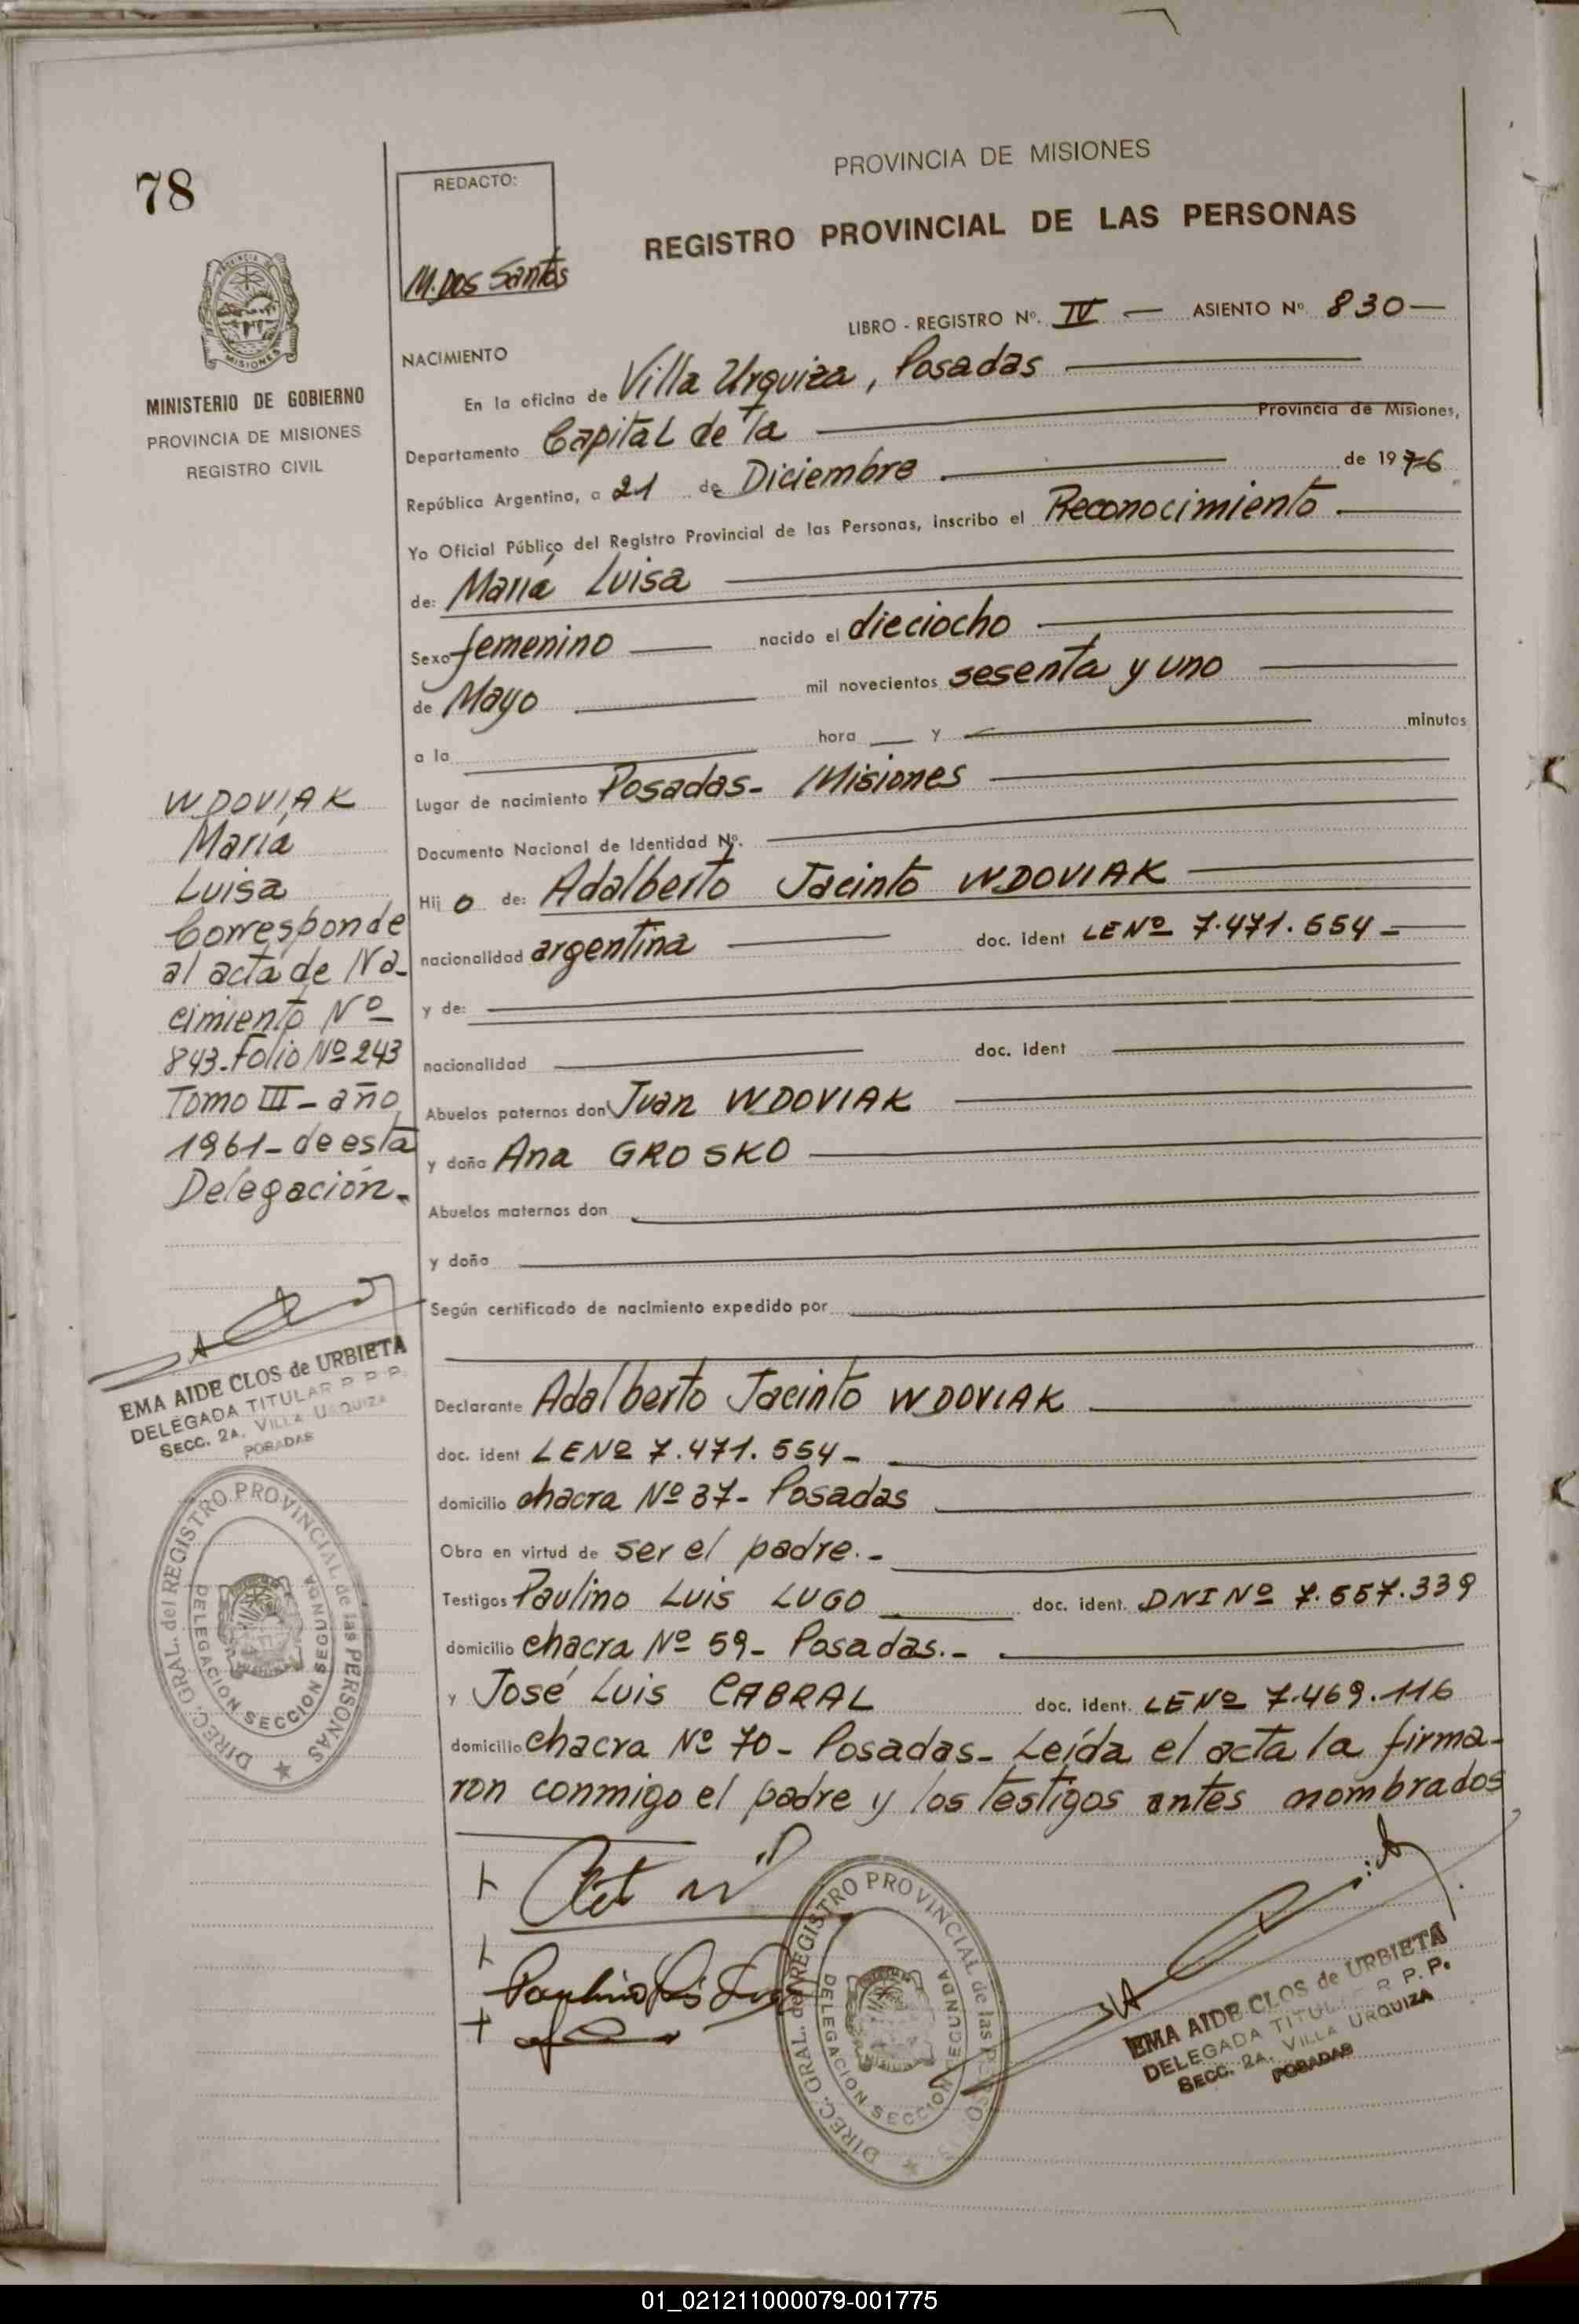 78
REDACTO:
M. DOS Santos
PROVINCIA DE MISIONES
REGISTRO PROVINCIAL DE LAS PERSONAS
LIBRO - REGISTRO Nº. IV — ASIENTO Nº 830 —
PROVINCIA DE MISIONES
MINISTERIO DE GOBIERNO
PROVINCIA DE MISIONES
REGISTRO CIVIL
NACIMIENTO
En la oficina de Villa Urquiza, Posadas
Departamento Capital de la Provincia de Misiones,
República Argentina, a 21 de Diciembre de 1976
Yo Oficial Público del Registro Provincial de las Personas, inscribo el Reconocimiento
de: María Luisa
Sexo femenino nacido el dieciocho
de Mayo mil novecientos sesenta y uno
a la hora y minutos
Lugar de nacimiento Posadas - Misiones
Documento Nacional de Identidad Nº.
Hij o de: Adalberto Jacinto WDOVIAK
nacionalidad argentina doc. ident LE Nº 7.471.554 -
y de:
nacionalidad doc. ident
Abuelos paternos don Juan WDOVIAK
y doña Ana GROSKO
Abuelos maternos don
y doña
Según certificado de nacimiento expedido por
Declarante Adalberto Jacinto WDOVIAK
doc. ident LE Nº 7.471.554 -
domicilio chacra Nº 37 - Posadas
Obra en virtud de ser el padre. -
Testigos Paulino Luis LUGO doc. ident. DNI Nº 7.557.339
domicilio chacra Nº 59 - Posadas. -
y José Luis CABRAL doc. ident. LE Nº 7.469.116
domicilio chacra Nº 70 - Posadas - Leída el acta la firma-
ron conmigo el padre y los testigos antes nombrados
WDOVIAK
María
Luisa
Corresponde
al acta de Na-
cimiento Nº
843 - Folio Nº 243
Tomo III - año
1961 - de esta
Delegación -
EMA AIDE CLOS de URBIETA
DELEGADA TITULAR R P P.
SECC. 2A. VILLA URQUIZA
POSADAS
DIREC. GRAL. del REGISTRO PROVINCIAL de las PERSONAS
DELEGACION SECCION SEGUNDA
Paulino Luis Lugo
DIREC. GRAL. del REGISTRO PROVINCIAL de las PERSONAS
DELEGACION SECCION SEGUNDA
EMA AIDE CLOS de URBIETA
DELEGADA TITULAR R P. P.
SECC. 2A. VILLA URQUIZA
POSADAS
01_021211000079-001775